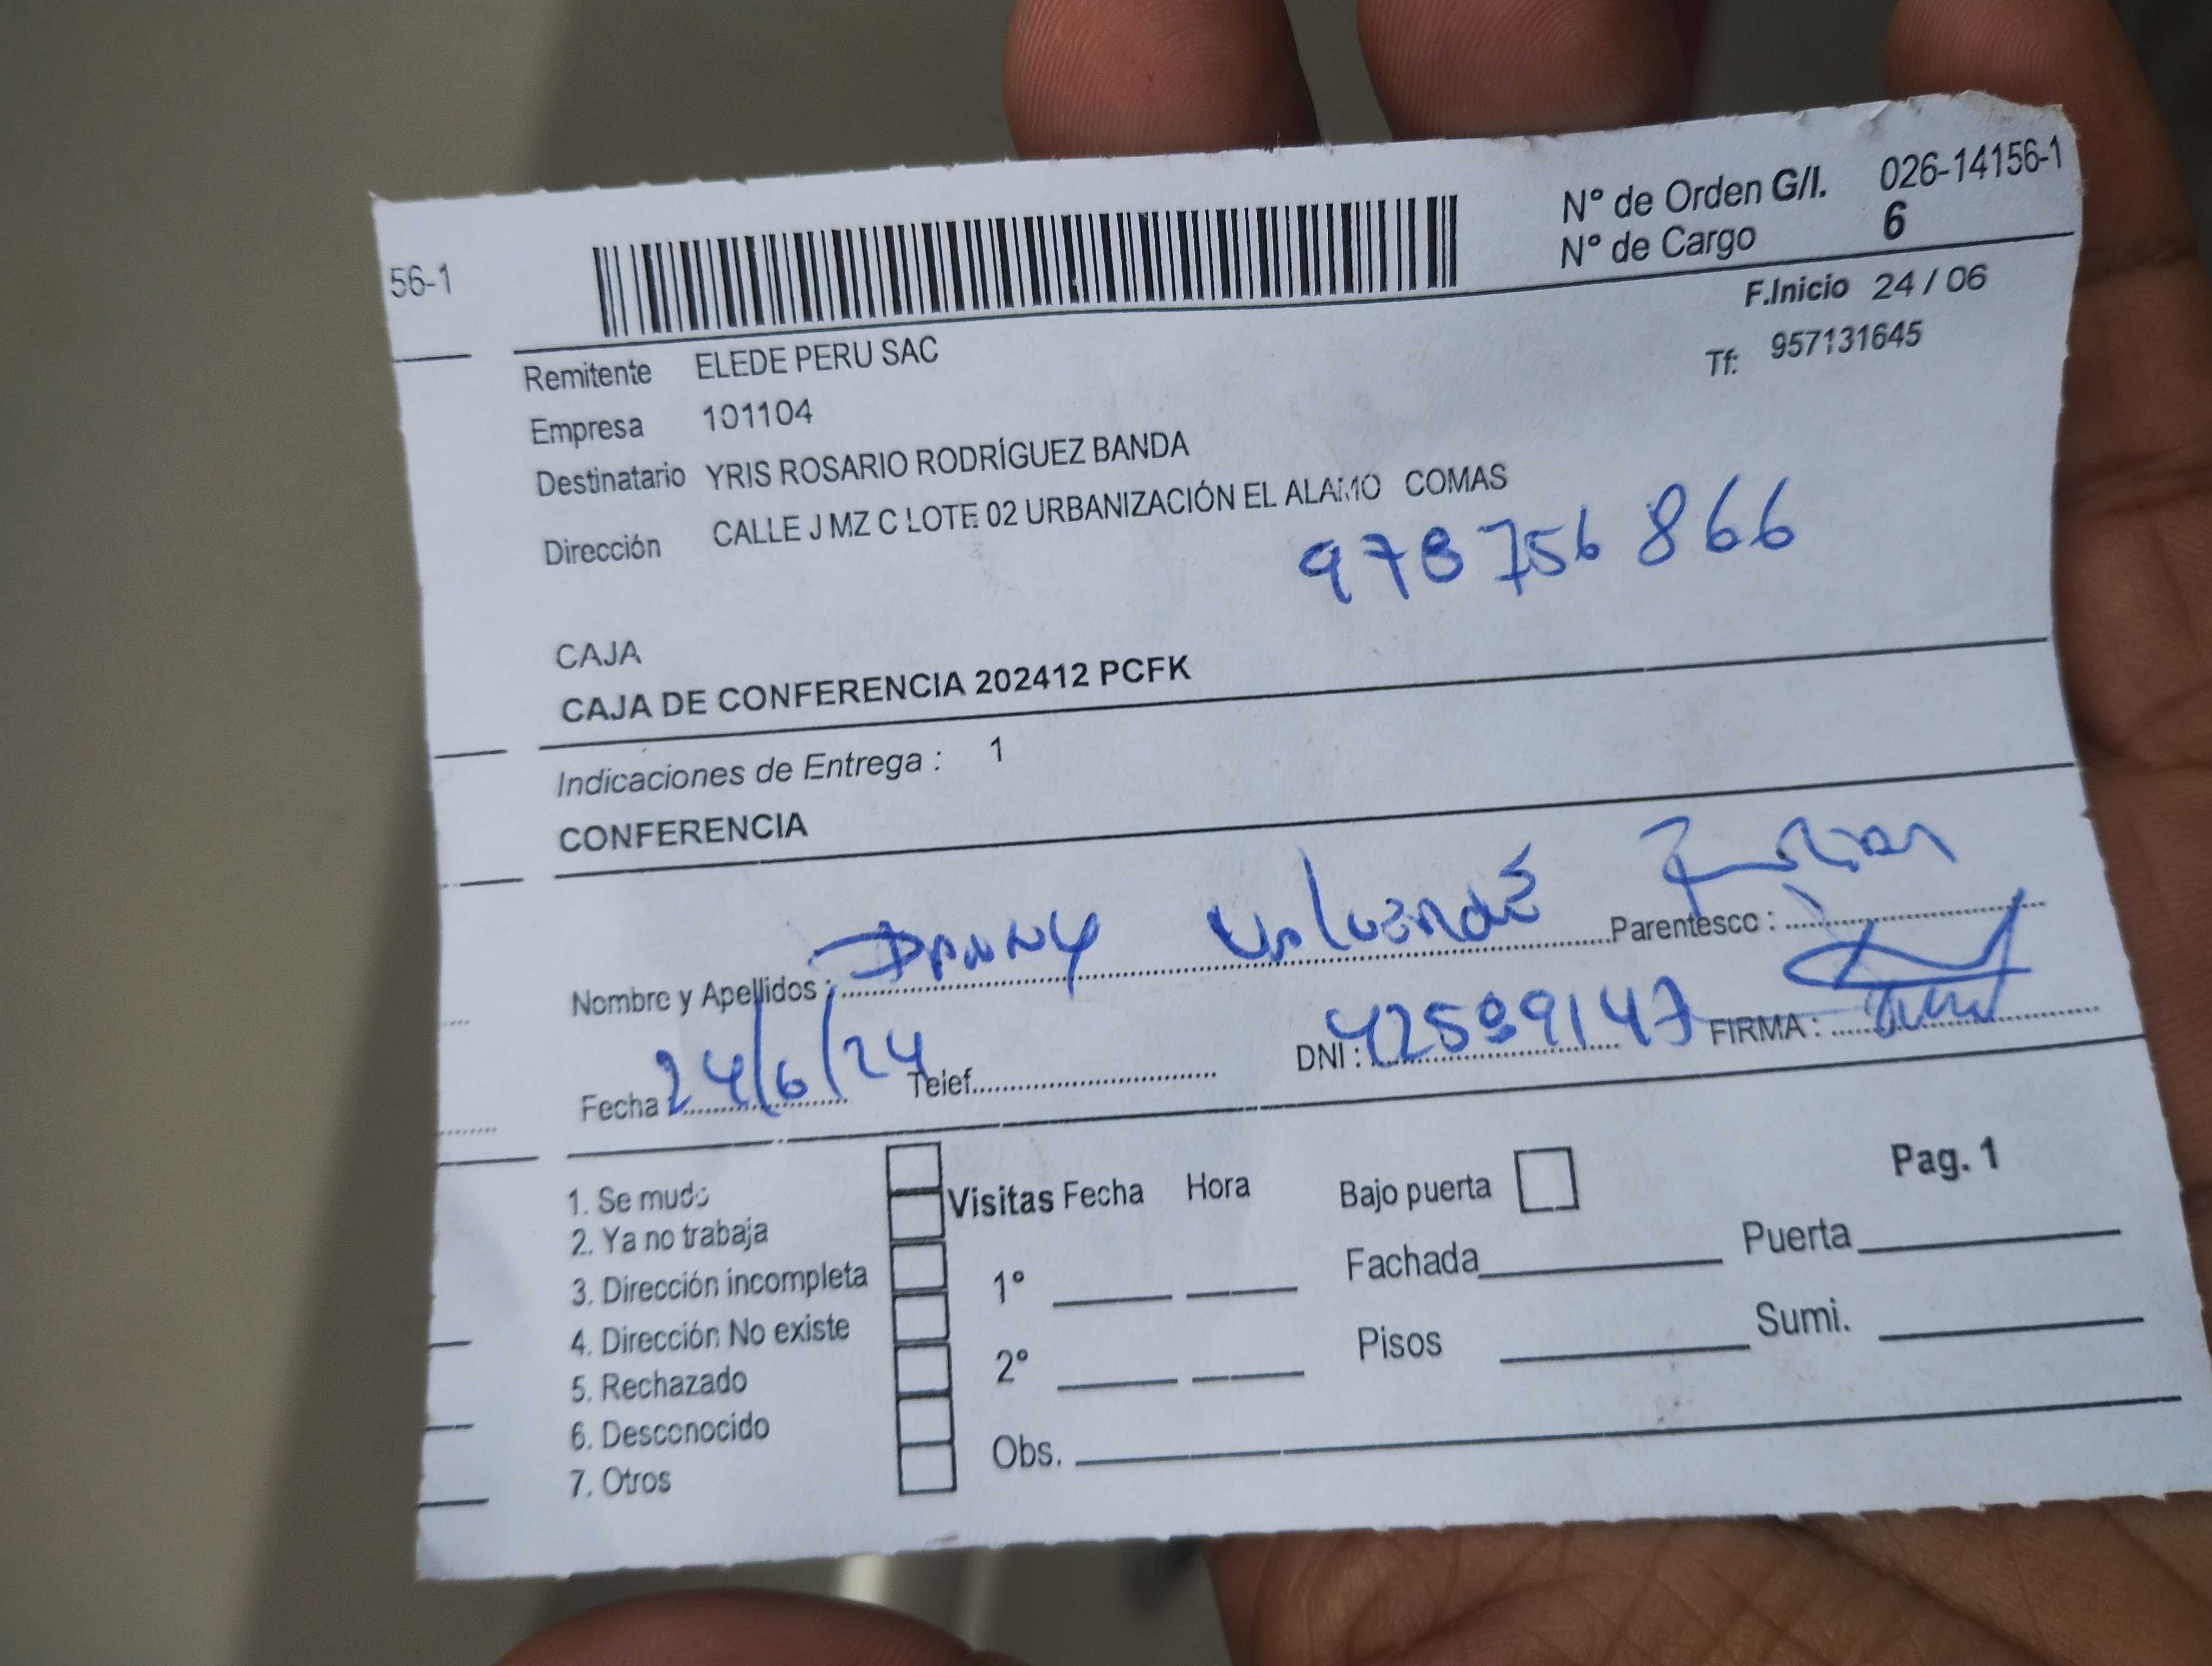 N° de Orden G/I. 026-14156-1
N° de Cargo 6
56-1
F.Inicio 24 / 06
Remitente ELEDE PERU SAC Tf: 957131645
Empresa 101104
Destinatario YRIS ROSARIO RODRÍGUEZ BANDA
Dirección CALLE J MZ C LOTE 02 URBANIZACIÓN EL ALAMO COMAS
978 756 866
CAJA
CAJA DE CONFERENCIA 202412 PCFK
Indicaciones de Entrega : 1
CONFERENCIA
Nombre y Apellidos : Danny Valverde Parentesco :
Fecha : 24/6/24 Telef. DNI : FIRMA :
1. Se mudo
2. Ya no trabaja
3. Dirección incompleta
4. Dirección No existe
5. Rechazado
6. Desconocido
7. Otros
Visitas Fecha Hora
1°
2°
Obs.
Bajo puerta Pag. 1
Fachada Puerta
Pisos Sumi.